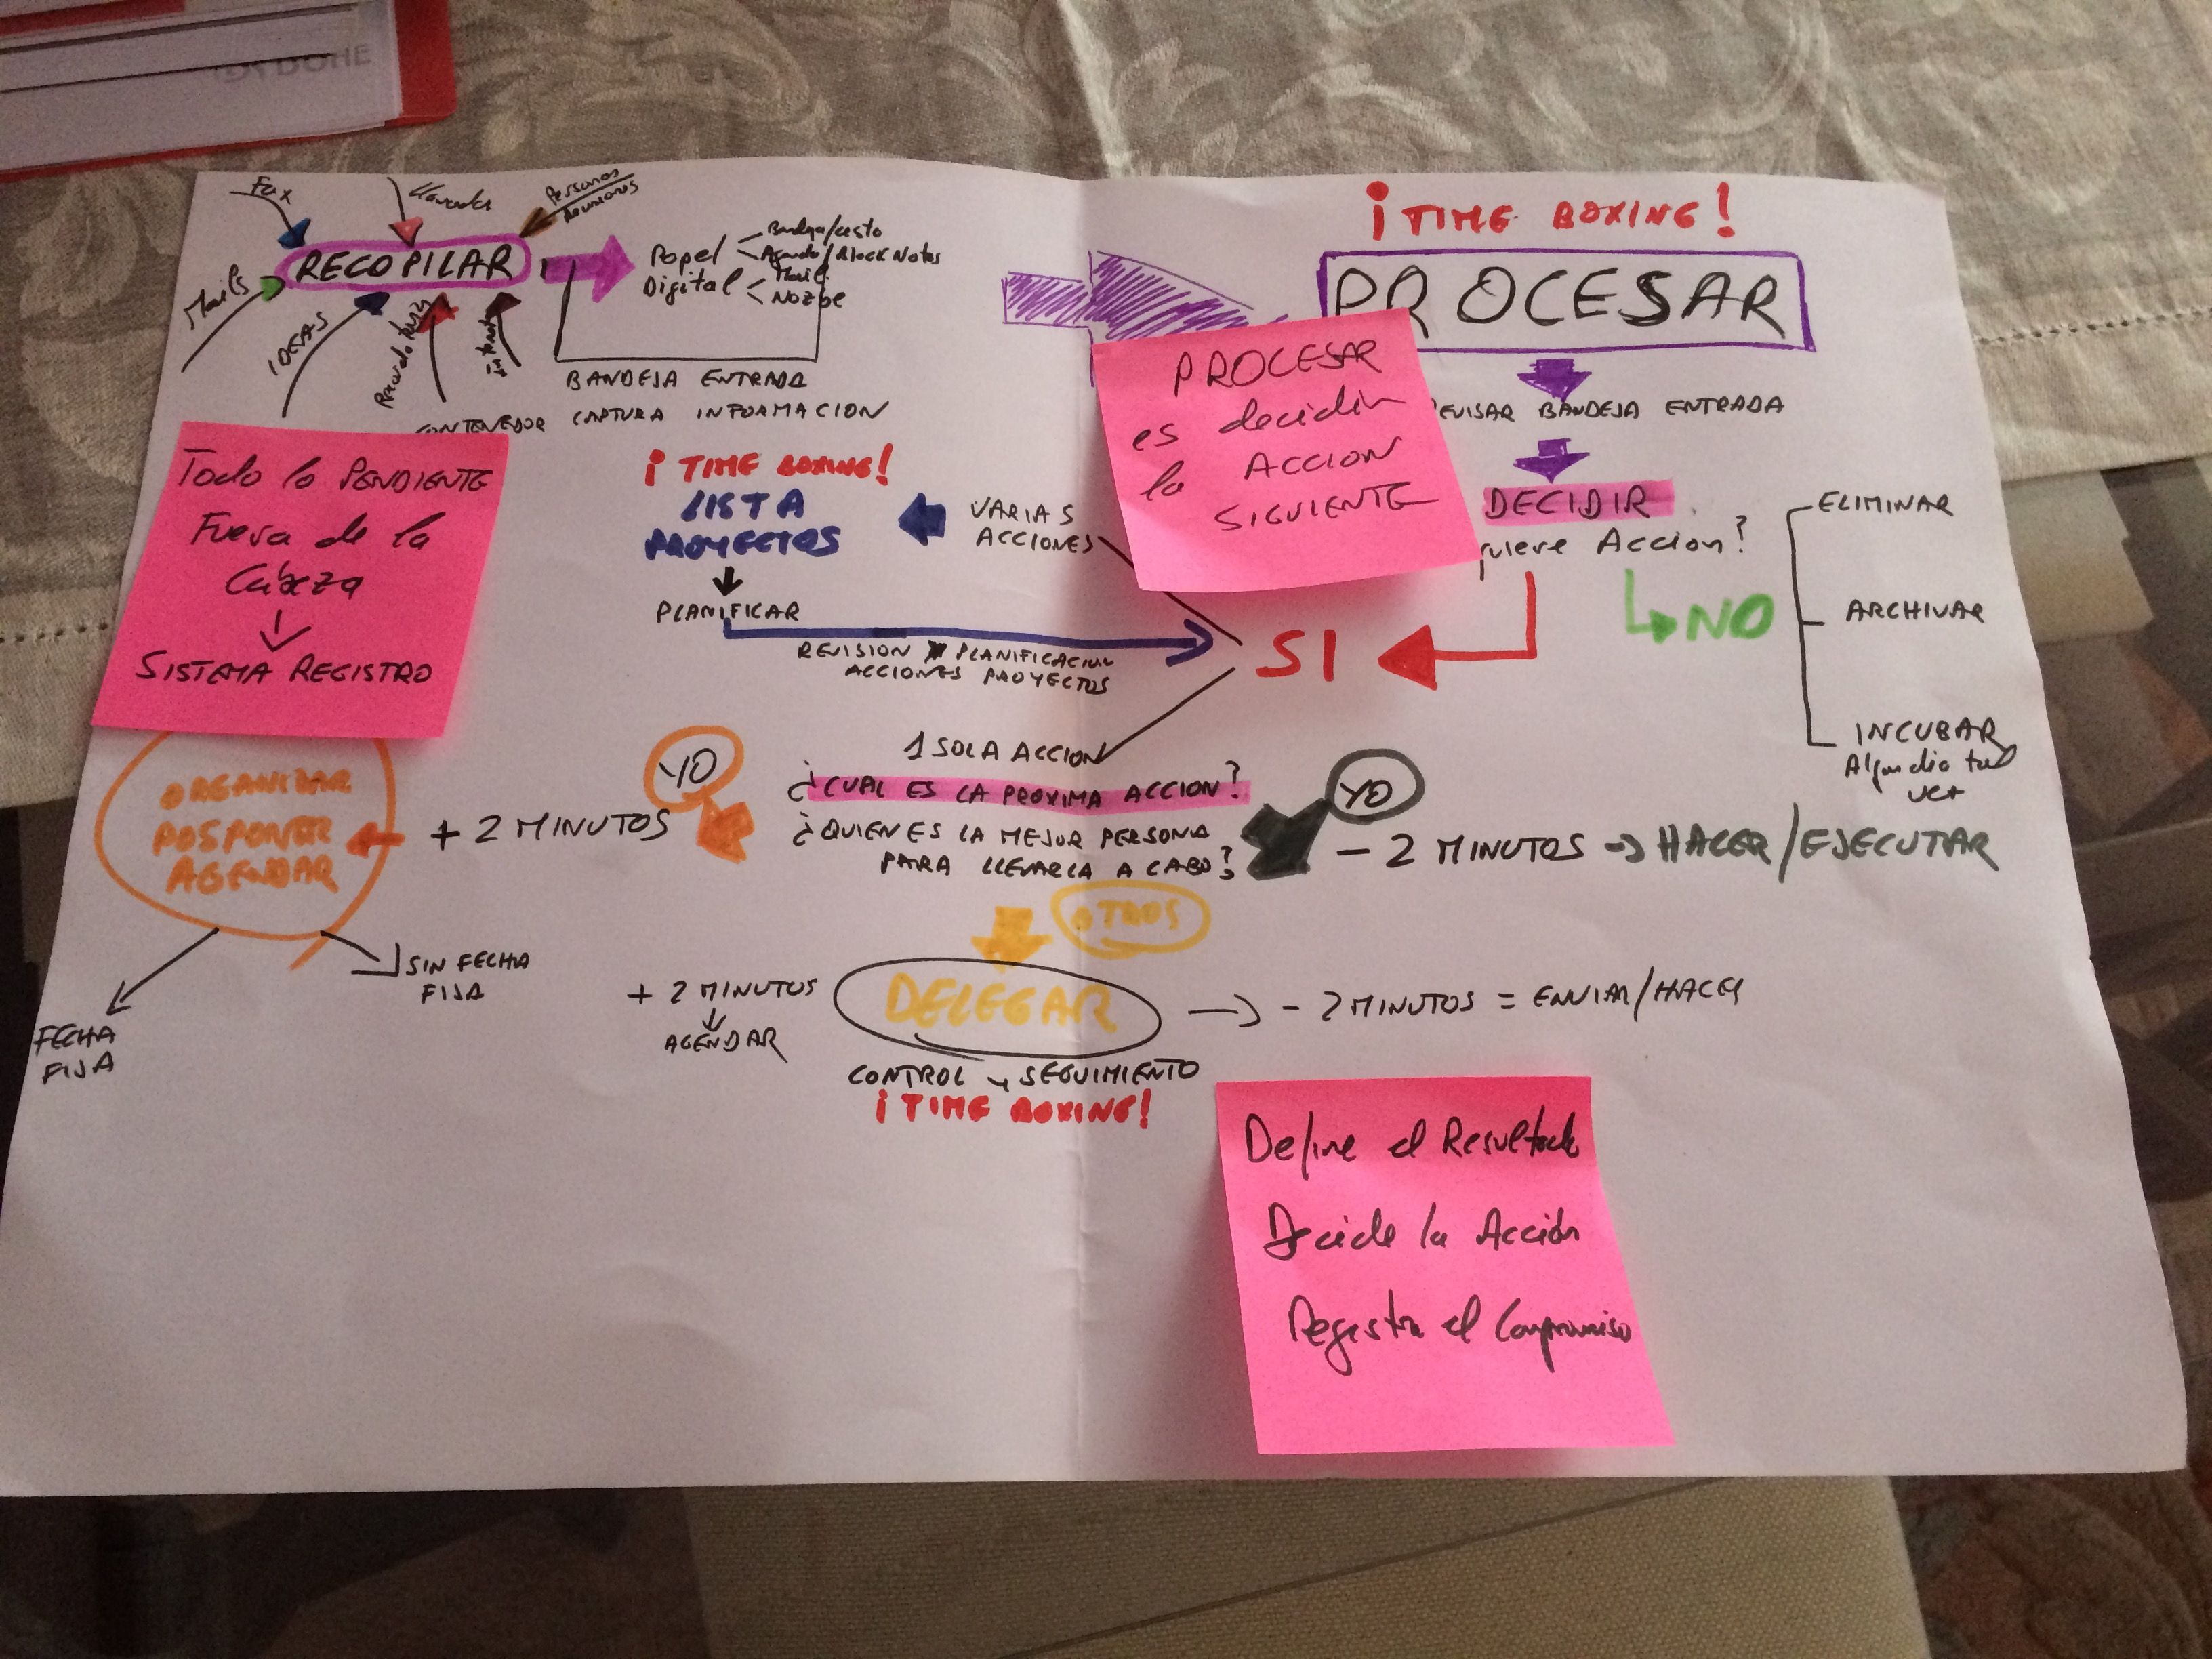 DOHE
Fax
Llamadas
Personas
Reuniones
Mails
RECOPILAR
IDEAS
Internet
Papel
Bandeja/cesto
Agenda/Block Notas
Digital
Mail
Nozbe
BANDEJA ENTRADA
CONTENEDOR CAPTURA INFORMACION
Todo lo PENDIENTE
Fuera de la
Cabeza
SISTEMA REGISTRO
¡TIME BOXING!
PROCESAR
PROCESAR
es decidir
la ACCION
SIGUIENTE
EVISAR BANDEJA ENTRADA
DECIDIR
quiere Accion?
NO
ELIMINAR
ARCHIVAR
INCUBAR
Algun dia tal
vez
SI
VARIAS
ACCIONES
¡TIME BOXING!
LISTA
PROYECTOS
PLANIFICAR
REVISION Y PLANIFICACION
ACCIONES PROYECTOS
1 SOLA ACCION
¿CUAL ES LA PROXIMA ACCION?
¿QUIEN ES LA MEJOR PERSONA
PARA LLEVARLA A CABO?
YO
- 2 MINUTOS → HACER/EJECUTAR
YO
+ 2 MINUTOS
ORGANIZAR
POSPONER
AGENDAR
FECHA
FIJA
SIN FECHA
FIJA
OTROS
DELEGAR
+ 2 MINUTOS
AGENDAR
- 2 MINUTOS = ENVIAR/HACER
CONTROL y SEGUIMIENTO
¡TIME BOXING!
Define el Resultado
Decide la Acción
Registra el Compromiso